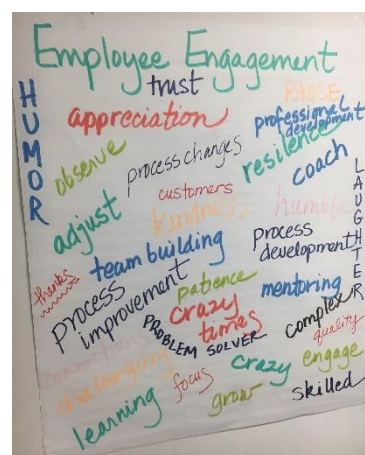 Employee Engagement
HUMOR
trust
PAUSE
appreciation
professional
development
observe
process changes
resilence
coach
customers
LAUGHTER
adjust
kindness
humble
team building
process
development
thanks
process
improvement
patience
mentoring
crazy
times
complex
PROBLEM SOLVER
quality
challenging
focus
crazy
engage
learning
grow
skilled